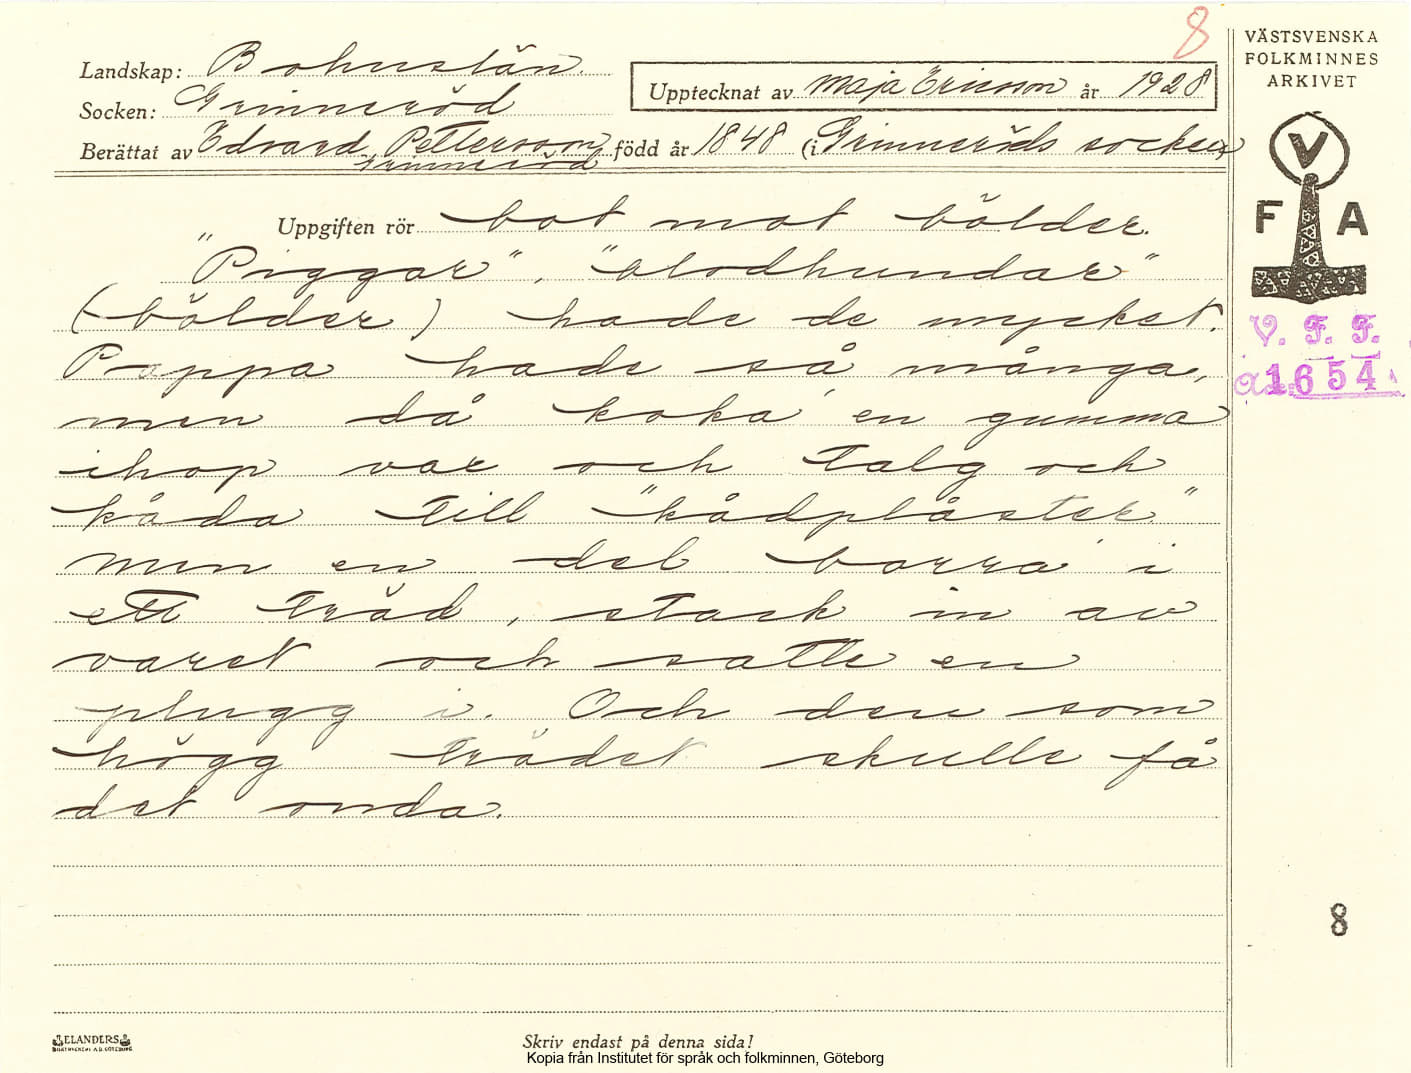 8
VÄSTSVENSKA
FOLKMINNES
ARKIVET
Landskap: Bohuslän.
Upptecknat av Maja Ericsson år 1928
Socken: Grinneröd
Berättat av Edvard Pettersson född år 1848 (i Grinneröds socken)
Grinneröd
V
F A
Uppgiften rör bot mot bölder.
"Piggar", "blodhundar"
(bölder) hade de mycket.
Pappa hade så många,
men då koka' en gumma
ihop var och talg och
kåda till "kådplåster"
men en del borra' i
ett träd, stack in av
varet och satte en
plugg i. Och den som
högg trädet skulle få
det onda.
V. F. F.
1654
8
ELANDERS
Skriv endast på denna sida!
Kopia från Institutet för språk och folkminnen, Göteborg